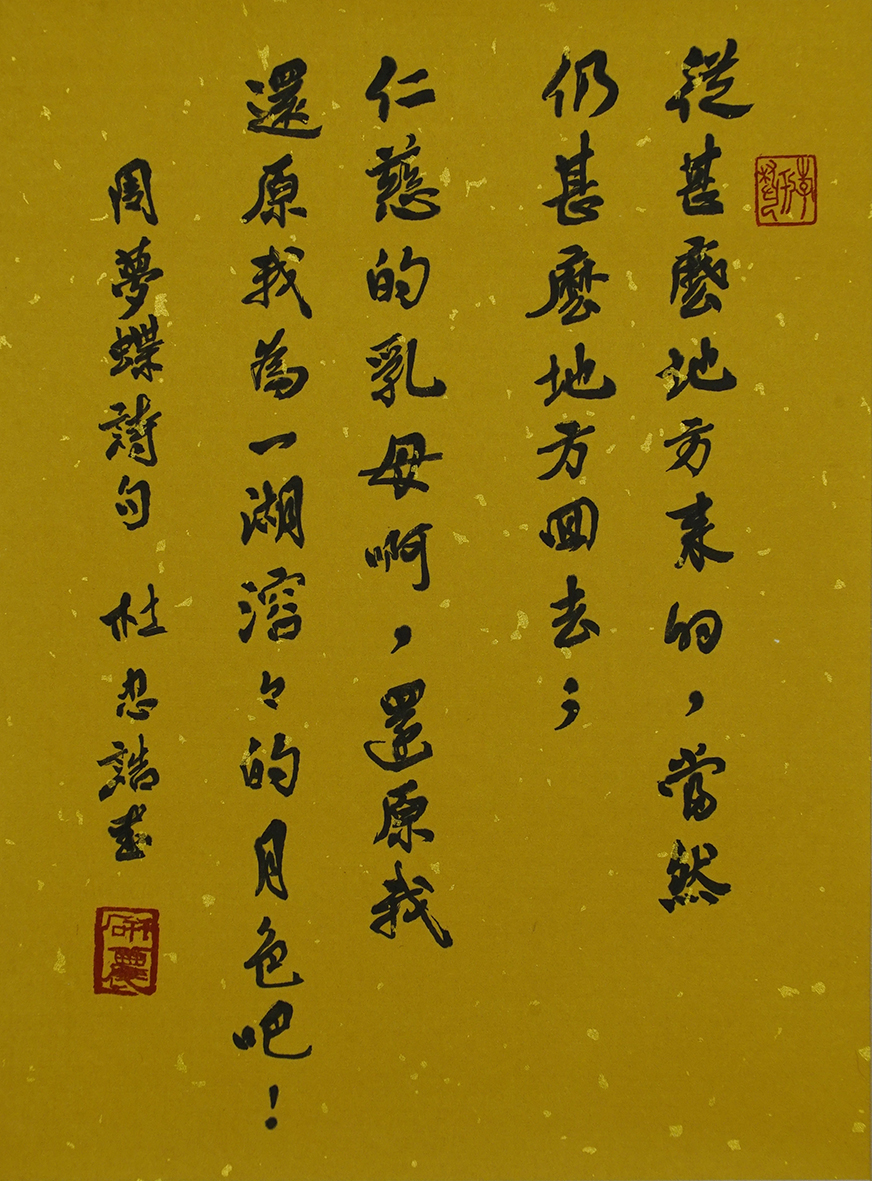 從甚麼地方來的，當然
仍甚麼地方回去；
仁慈的乳母啊，還原我
還原我為一湖溶々的月色吧！
周夢蝶詩句 杜忠誥書
研農